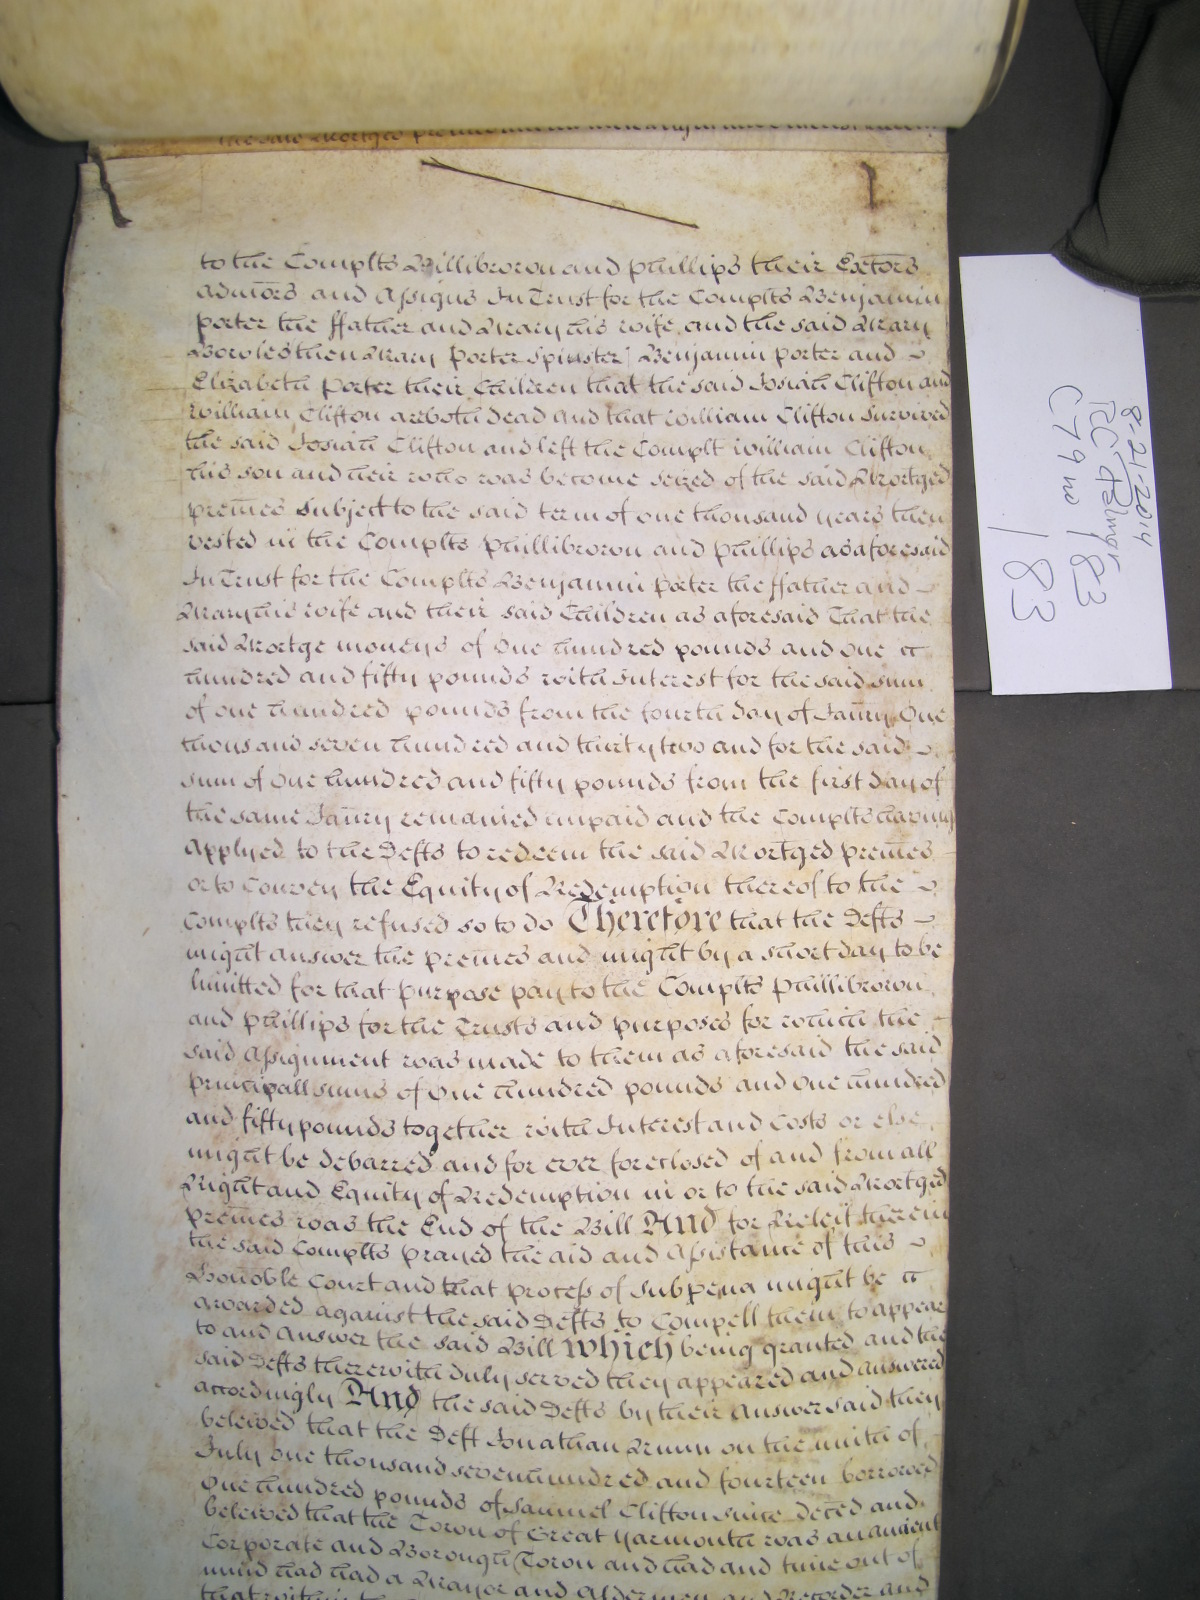 the said Mortged premes
to the Complts Phillibrown and Phillips their Exetors
admors and Assigns In Trust for the Complts Benjamin
Porter the ffather and Mary his wife and the said Mary
Bowles then Mary Porter Spinster Benjamin Porter and
Elizabeth Porter their Children that the said Josiah Clifton and
William Clifton are both dead and that William Clifton Survived
the said Josiah Clifton and left the Complt William Clifton
his son and heir who was become seized of the said Mortged
premes Subject to the said term of one thousand years then
vested in the Complts Phillibrown and Phillips as aforesaid
In Trust for the Complts Benjamin Porter the ffather and
Mary his wife and their said Children as aforesaid That the
said Mortge moneys of One hundred pounds and one
hundred and fifty pounds with Interest for the said sum
of one hundred pounds from the fourth day of Janry One
thousand seven hundred and thirty two and for the said
sum of One hundred and fifty pounds from the first day of
the same Janry remained unpaid and the Complts having
applyed to the Defts to redeem the said Mortged premes
or to Convey the Equity of Redemption thereof to the
Complts they refused so to do Therefore that the Defts
might answer the premes and might by a short day to be
limitted for that purpose pay to the Complts Phillibrown
and Phillips for the Trusts and purposes for which the
said Assignment was made to them as aforesaid the said
principall sums of One hundred pounds and One hundred
and fifty pounds together with Interest and Costs or else
might be debarred and for ever foreclosed of and from all
Right and Equity of Redemption in or to the said Mortged
premes was the End of the Bill And for Releif therein
the said Complts prayed the aid and Assistance of this
Honoble Court and that process of Subpena might be
awarded against the said Defts to Compell them to appear
to and answer the said Bill which being granted and the
said Defts therewith duly served they appeared and answered
accordingly And the said Defts by their Answer said they
beleived that the Deft Jonathan on the ninth of
July one thousand seven hundred and fourteen borrowed
One hundred pounds of Samuel Clifton since deced and
beleived that the Town of Great Yarmouth was an antient
Corporate and Borough Town and had and time out of
mind had had a Mayor and Aldermen and Recorder and
that within
8-21-2014
C79 no 183
183